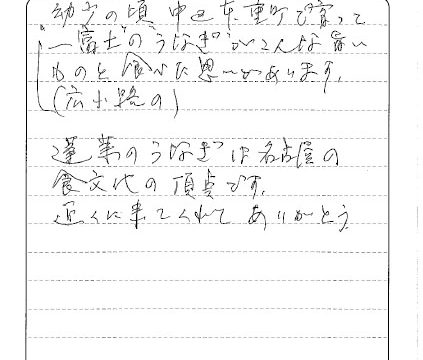 幼少の頃 中区東重町で育って
一富士のうなぎがこんな旨い
ものと食べた思いがあります。
(広小路の)
蓬莱のうなぎは名古屋の
食文化の頂点です。
近くに来てくれてありがとう